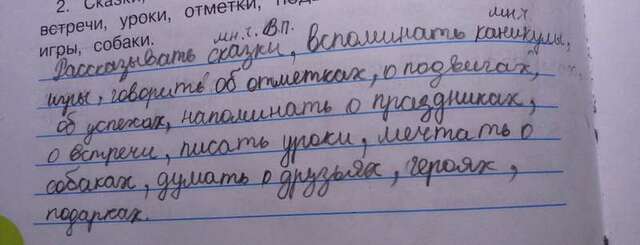 2. Сказки,
встречи, уроки, отметки,
игры, собаки.
мн.ч. В.п. мн.ч.
Рассказывать сказки, вспоминать каникулы,
игры, говорить об отметках, о подвигах,
об успехах, напоминать о праздниках,
о встречи, писать уроки, мечтать о
собаках, думать о друзьях, героях,
подарках.